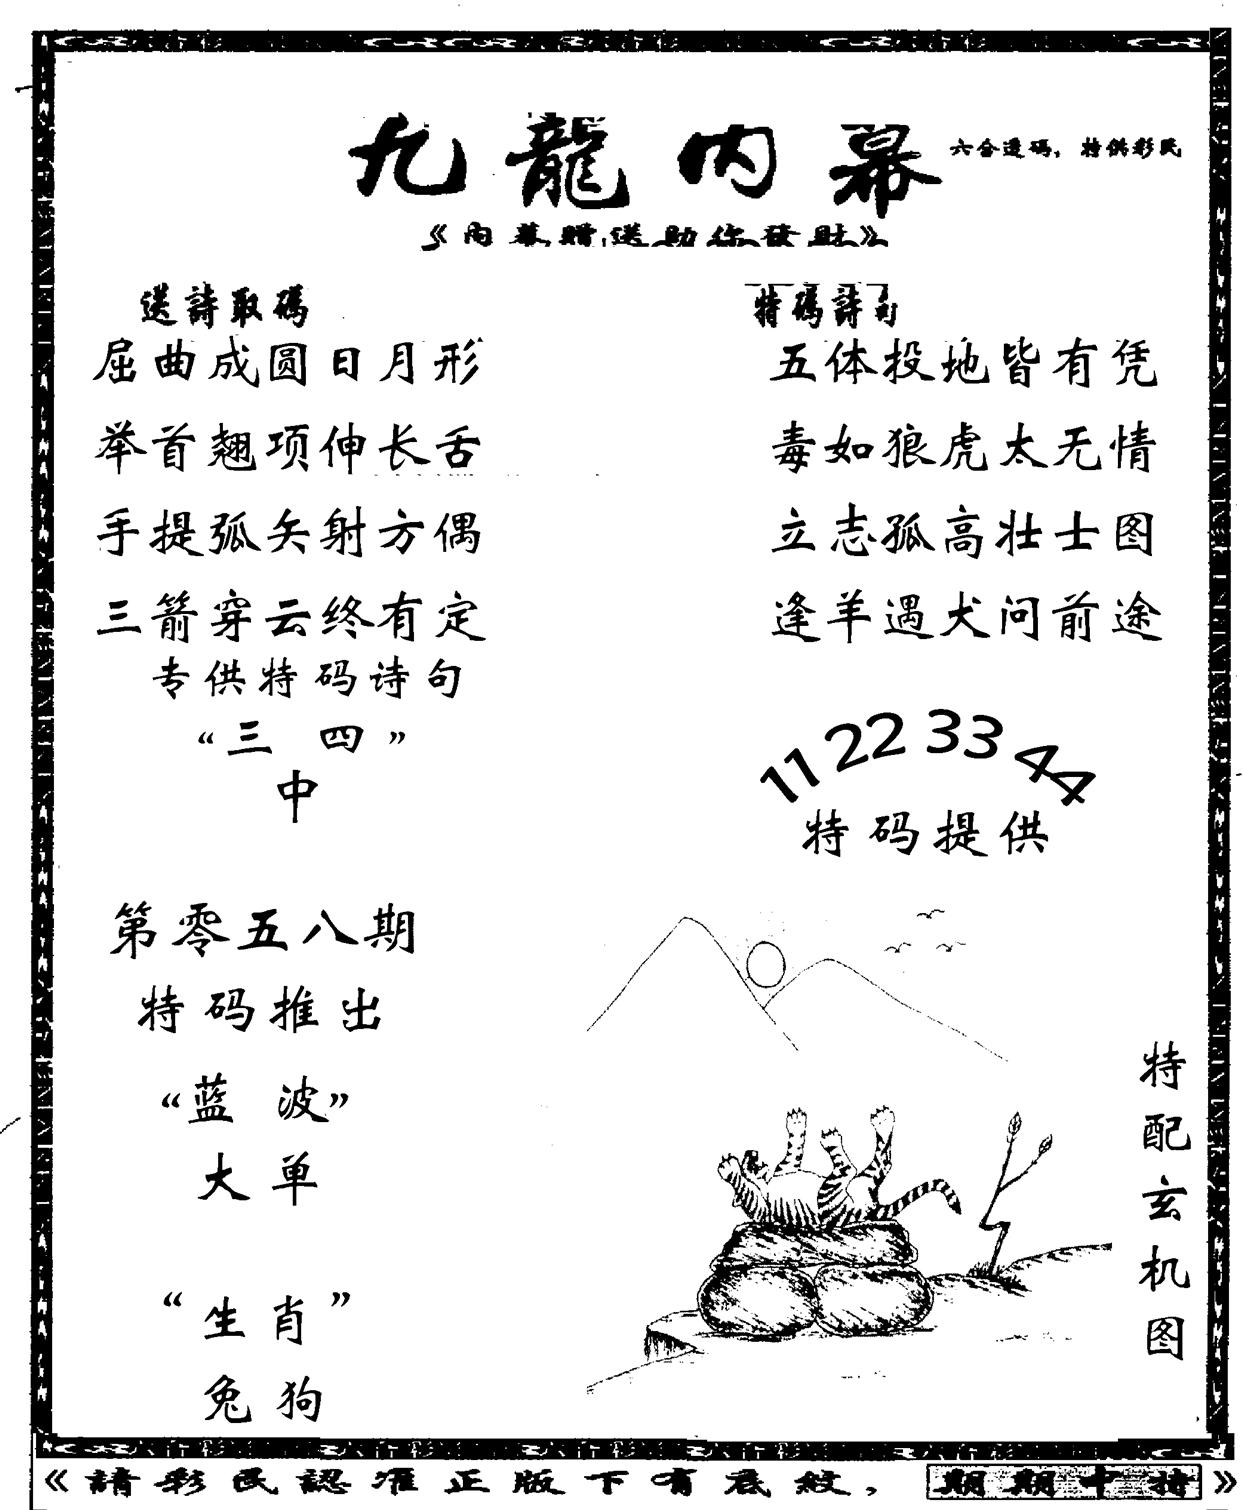 九龍内幕
六合透码，特供彩民
《内幕贈送助你發財》
送詩取碼
屈曲成圆日月形
举首翘项伸长舌
手提弧矢射方偶
三箭穿云终有定
专供特码诗句
“三 四”
中
第零五八期
特码推出
“蓝 波”
大单
“生肖”
兔狗
特碼詩句
五体投地皆有凭
毒如狼虎太无情
立志孤高壮士图
逢羊遇犬问前途
11 22 33 44
特码提供
特配玄机图
《請彩民認准正版下有底紋，期期中特》